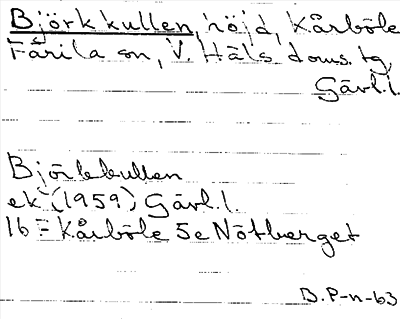 Björkkullen, höjd, Kårböle
Färila sn, V. Häls. doms. tg,
Gävl.l.
Björkkullen
ek (1959) Gävl.l.
16 = Kårböle 5e Nötberget
B.P-n-63